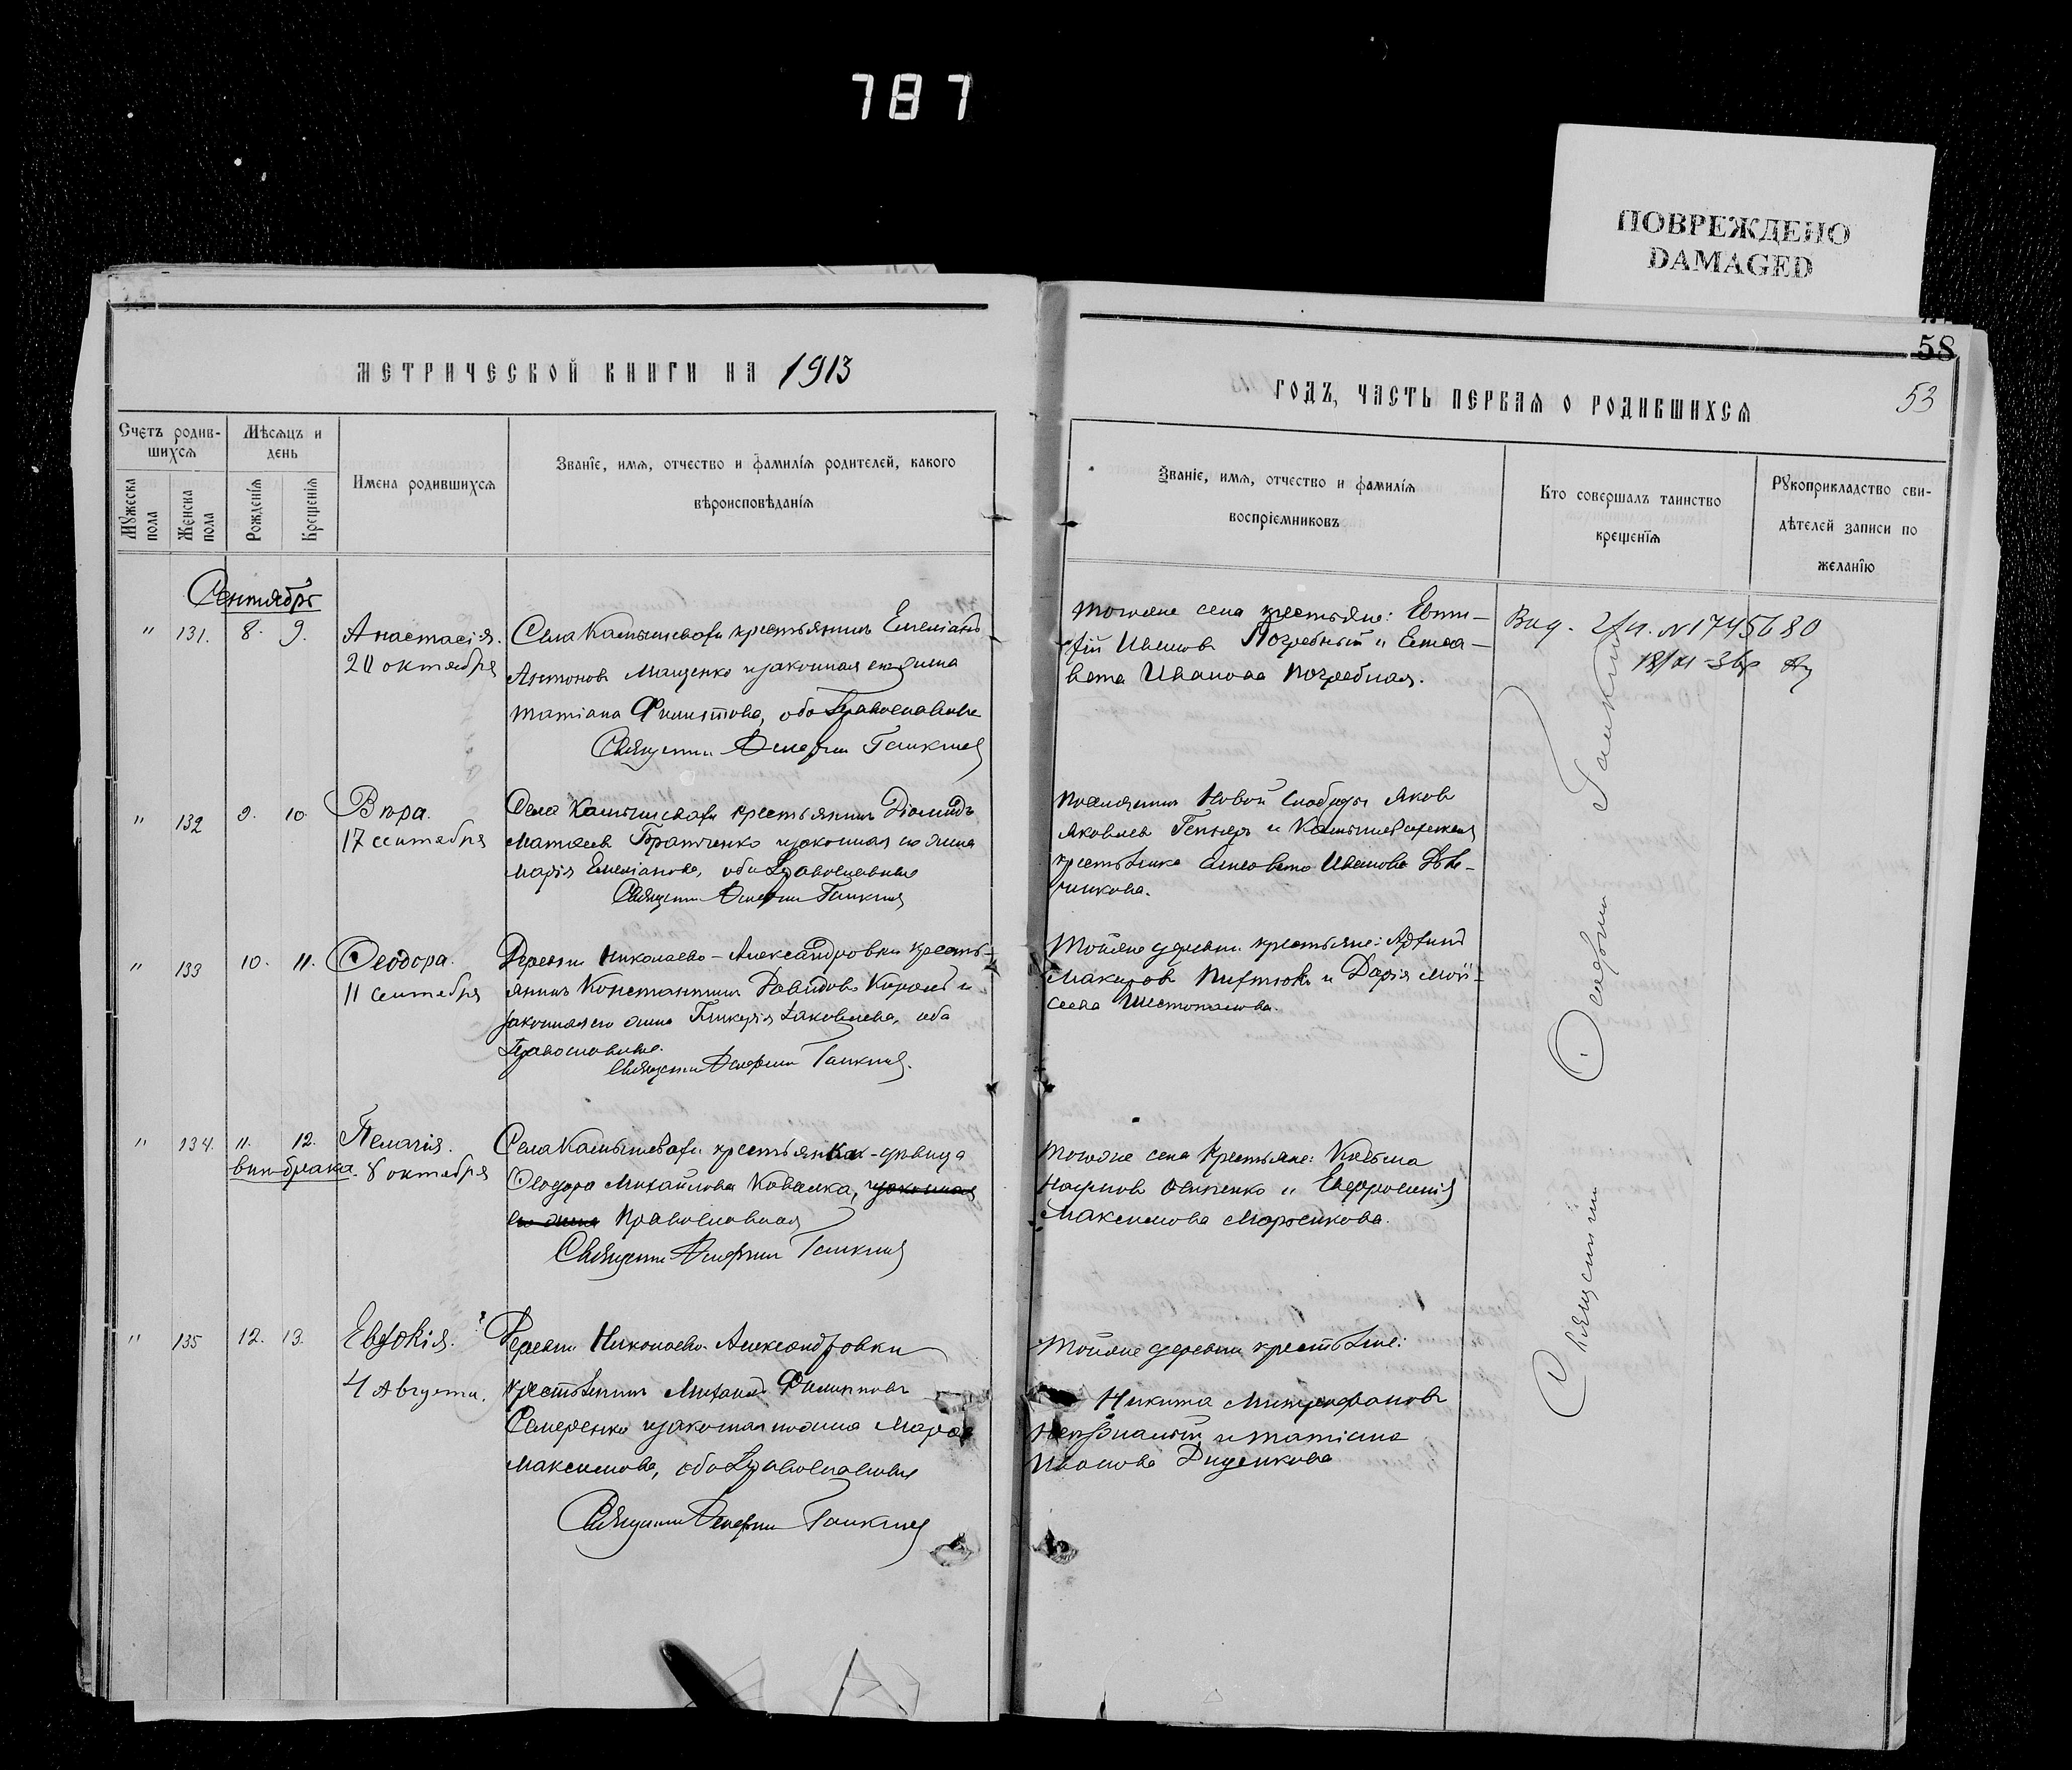 787
ПОВРЕЖДЕНО
DAMAGED
58
53
МЕТРИЧЕСКОЙ КНИГИ НА 1913
ГОДЪ, ЧАСТЬ ПЕРВАЯ О РОДИВШИХСЯ
Счетъ родив-
шихся
Мужеска пола
Женска пола
Мѣсяцъ и
день
Рожденія
Крещенія
Имена родившихся
Званіе, имя, отчество и фамилія родителей, какого
вѣроисповѣданія
Званіе, имя, отчество и фамилія
воспріемниковъ
Кто совершалъ таинство
крещенія
Рукоприкладство сви-
дѣтелей записи по
желанію
Сентябрь
" 131. 8. 9. Анастасія.
20 октября
Села Камышеватки крестьянинъ Емеліанъ
Антоновъ Мащенко и законная его жена
Татіана Филиппова, оба православные
Священникъ Галкинъ
Тогоже села крестьяне: Евти-
фій Ивановъ Погребный и Елиса-
вета Иванова Погребная.
№ 1745680
" 132 9. 10. Вѣра.
17 сентября
Села Камышеватки крестьянинъ Діомидъ
Матѳеев Братченко и законная его жена
Марія Емеліанова, оба православные
Священникъ Галкинъ
Новой Слободы Яковъ
Яковлев и Камышеватская
крестьянка Елисавета Иванова
" 133 10. 11. Ѳеодора.
11 сентября
Деревни Николаево-Александровки кресть-
янинъ Константинъ Давидовъ Король и
законная его жена Гликерія Іаковлева, оба
православные.
Священникъ Галкинъ.
Тойже деревни крестьяне:
Макаров и Дарія Мой-
сеева Шестопалова.
" 134. 11. 12. Пелагія.
внѣ брака. 8 октября
Села Камышеватки крестьянка-дѣвица
Ѳеодора Михайлова Ковалка, и законная
его жена православная
Священникъ Галкинъ
Тогоже села крестьяне: Козьма
Наумовъ Осипенко и Евфросинія
Максимова
" 135 12. 13. Евдокія.
4 Августа.
Деревни Николаево-Александровки
крестьянинъ Михаилъ Филипповъ
Семеренко и законная его жена Марѳа
Максимова, оба православные
Священникъ Галкинъ
Тойже деревни крестьяне:
Никита Митрофановъ
и Татіана
Иванова Диденкова
Священникъ Галкинъ